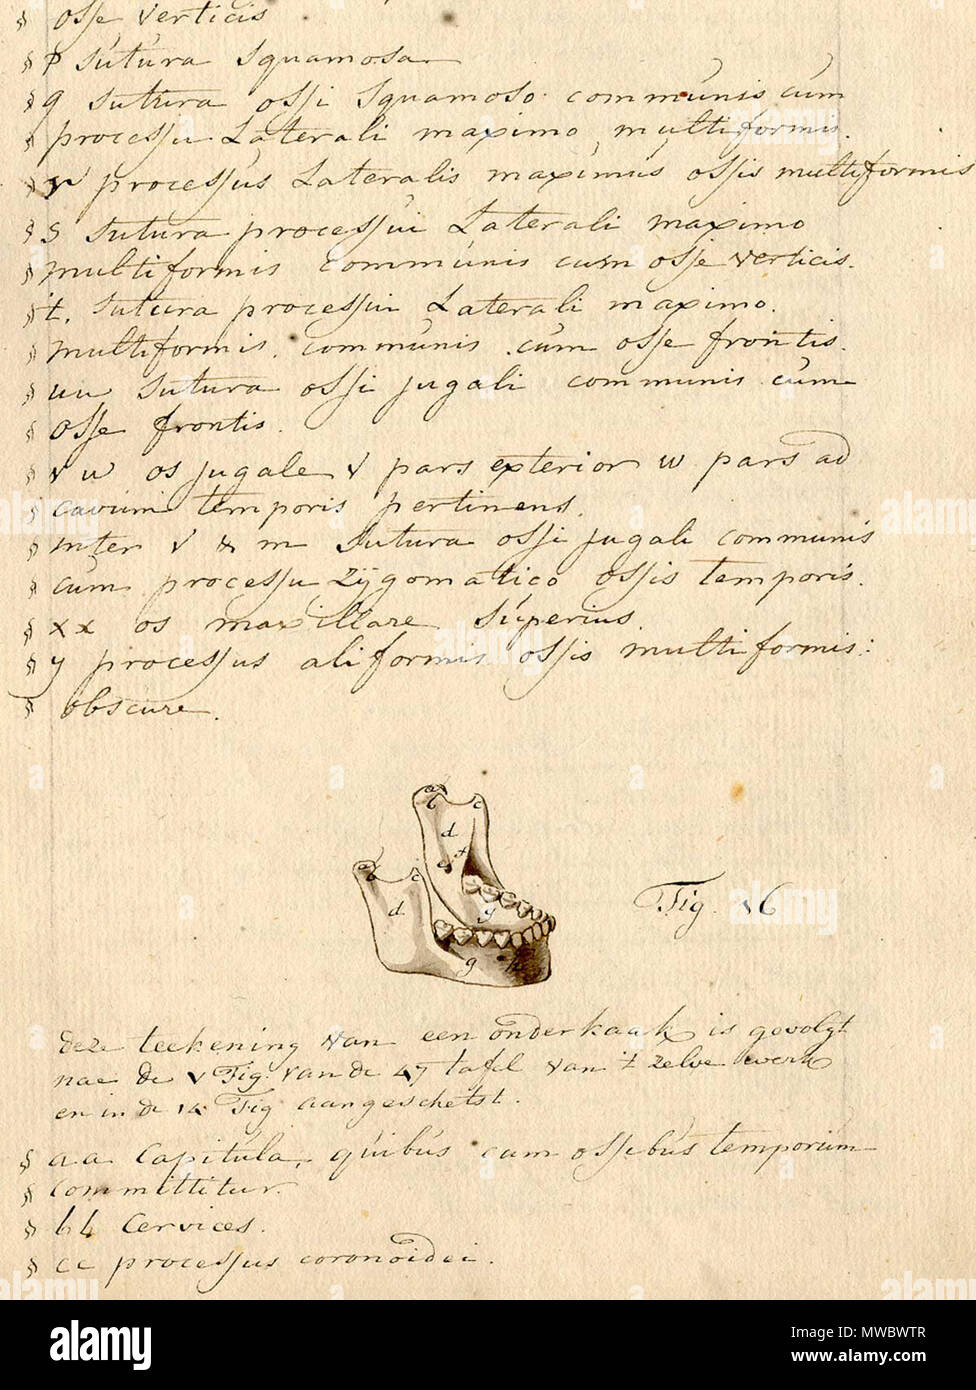 § osse verticis
§ p sutura squamosa
§ q sutura ossi squamoso communis cum
§ processu Laterali maximo multiformis.
§ r processus Lateralis maximus ossis multiformis
§ s sutura processui Laterali maximo
§ multiformis communis cum osse verticis.
§ t. sutura processui Laterali maximo.
§ multiformis. communis cum osse frontis.
§ uu sutura ossi jugali communis cum
§ osse frontis.
§ v w os jugale v pars exterior w pars ad
§ cavum temporis pertinens.
§ inter v & m sutura ossi jugali communis
§ cum processu zijgomatico ossis temporis.
§ xx os maxillare superius.
§ y processus aliformis ossis multiformis:
§ obscure.
a b c d e x a b c d g g h
Fig. 16
deze teekening van een onderkaak is gevolgt
nae de v Fig. van de 47 tafel van 't zelve werk
en in de 14 Fig aangeschetst.
§ aa Capitula, quibus cum ossibus temporum
§ committitur.
§ bb Cervices.
§ cc processus coronoidei.
alamy
Image ID: MWBWTR
www.alamy.com